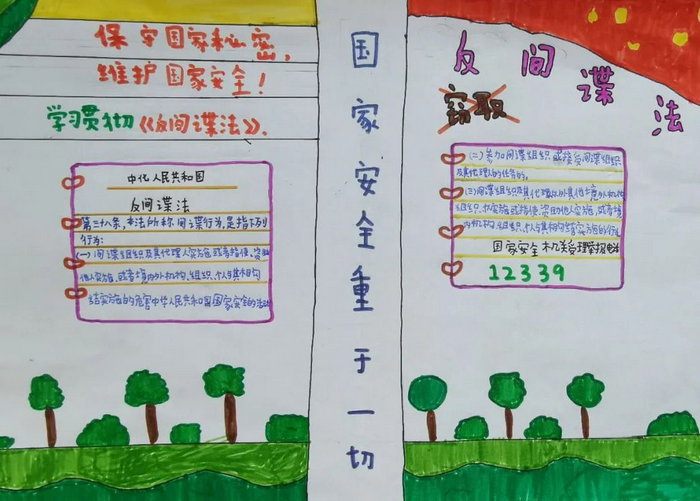 保守国家秘密,
维护国家安全!
学习贯彻《反间谍法》.
中华人民共和国
反间谍法
第三十八条,本法所称间谍行为,是指下列
行为:
(一)间谍组织及其代理人实施或者指使、资助
他人实施,或者境内外机构、组织、个人与其相勾
结实施的危害中华人民共和国国家安全的活动
国家安全重于一切
反间谍法
窃取
(二)参加间谍组织或接受间谍组织
及其代理人的任务的,
(三)间谍组织及其代理人以外其他境外机构
组织、个人实施或指使、资助他人实施,或者境
内机构、组织、个人与其相勾结实施的行为
国家安全机关受理举报电话
12339